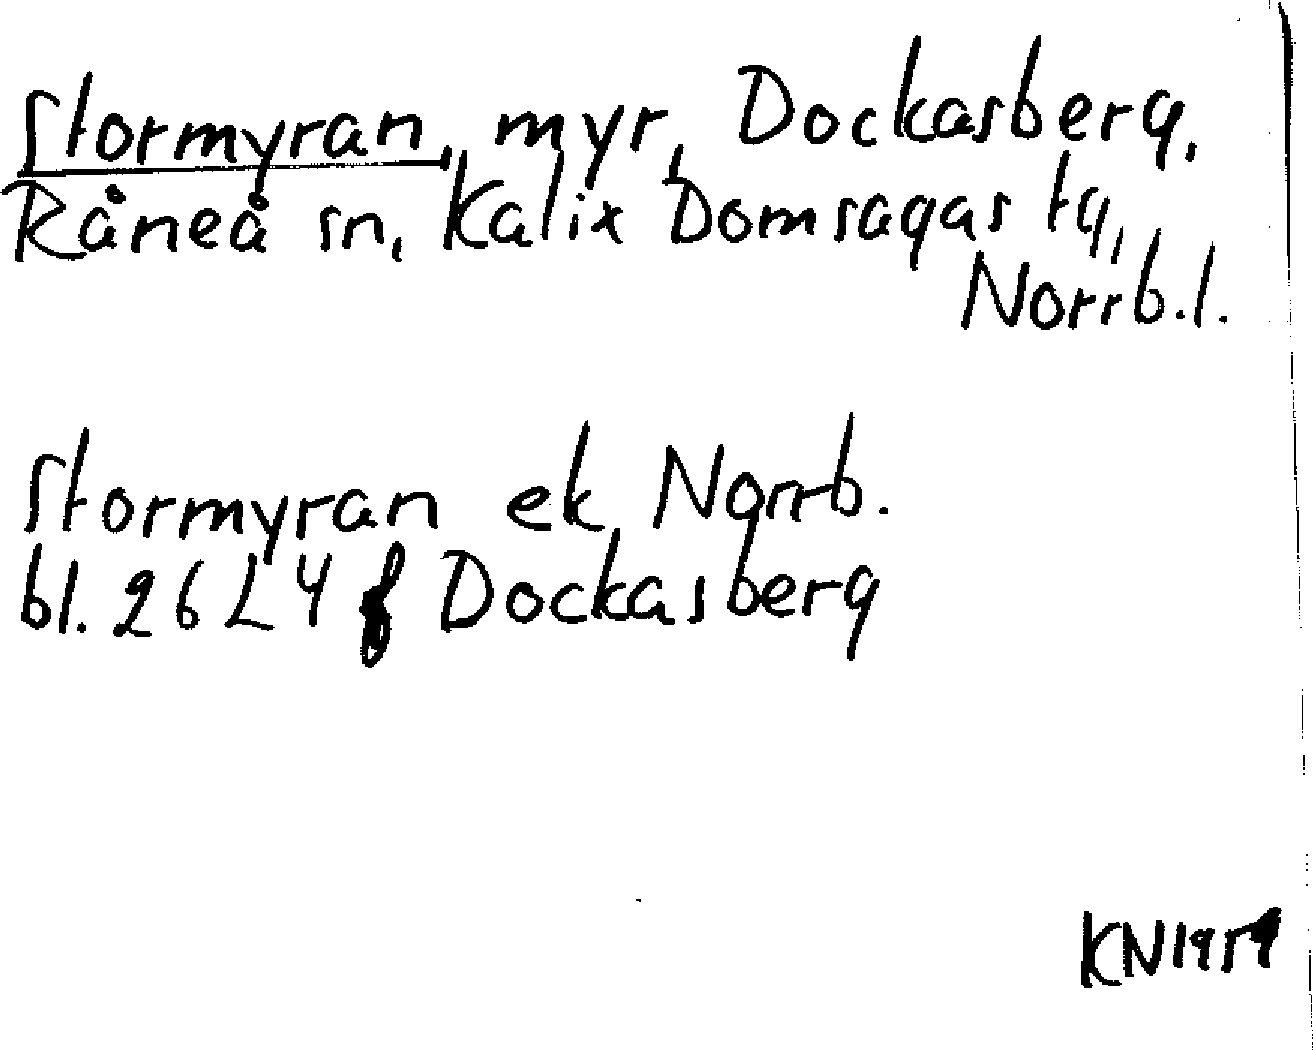 Stormyran, myr, Dockasberg,
Råneå sn, Kalix Domsagas tg,
Norrb.l.
Stormyran ek Norrb.
bl. 26 L 4 f Dockasberg
KN 1959